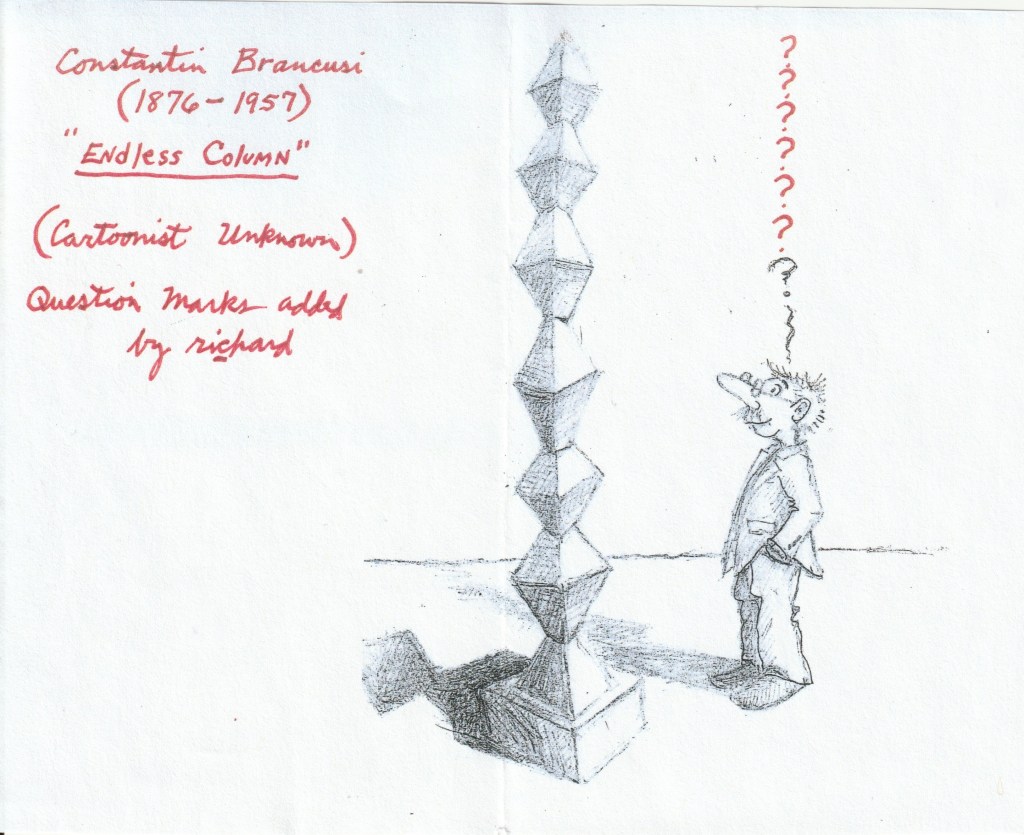 Constantin Brancusi
(1876-1957)
"Endless Column"
(Cartoonist Unknown)
Question Marks added
by richard
?
?
?
?
?
?
?